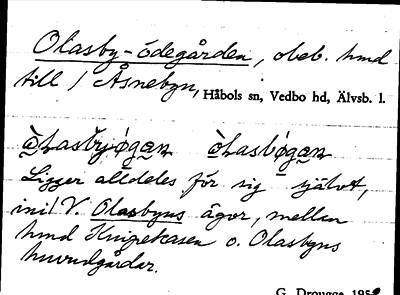 Olasby-ödegården, obeb. hmd
till 1 Åsnebyn, Håbols sn, Vedbo hd, Älvsb. l.
Ligger alldeles för sig självt,
inil V. Olasbyns ägor, mellan
hmd Knipekasen o. Olasbyns
huvudgårdar.
G. Drougge 195